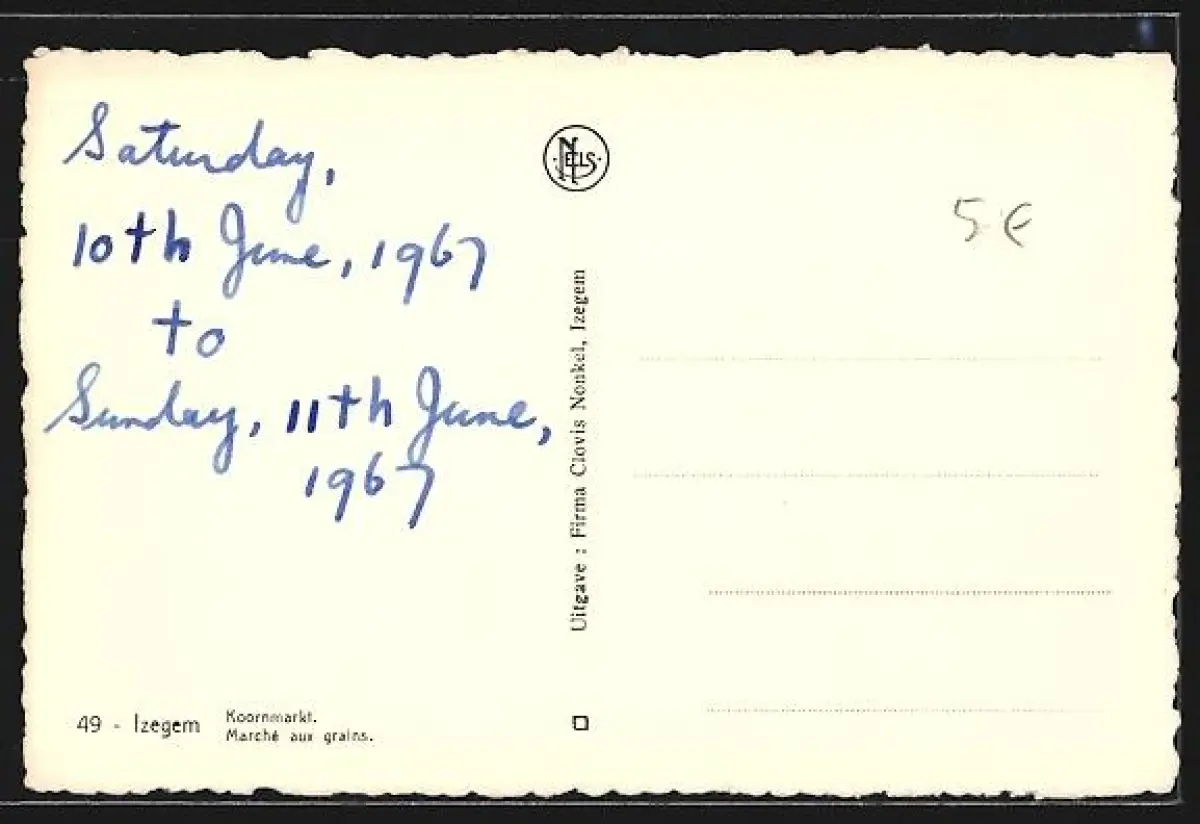 Saturday,
10th June, 1967
to
Sunday, 11th June,
1967
NELS
5€
Uitgave : Firma Clovis Nonkel, Izegem
49 - Izegem
Koornmarkt.
Marché aux grains.